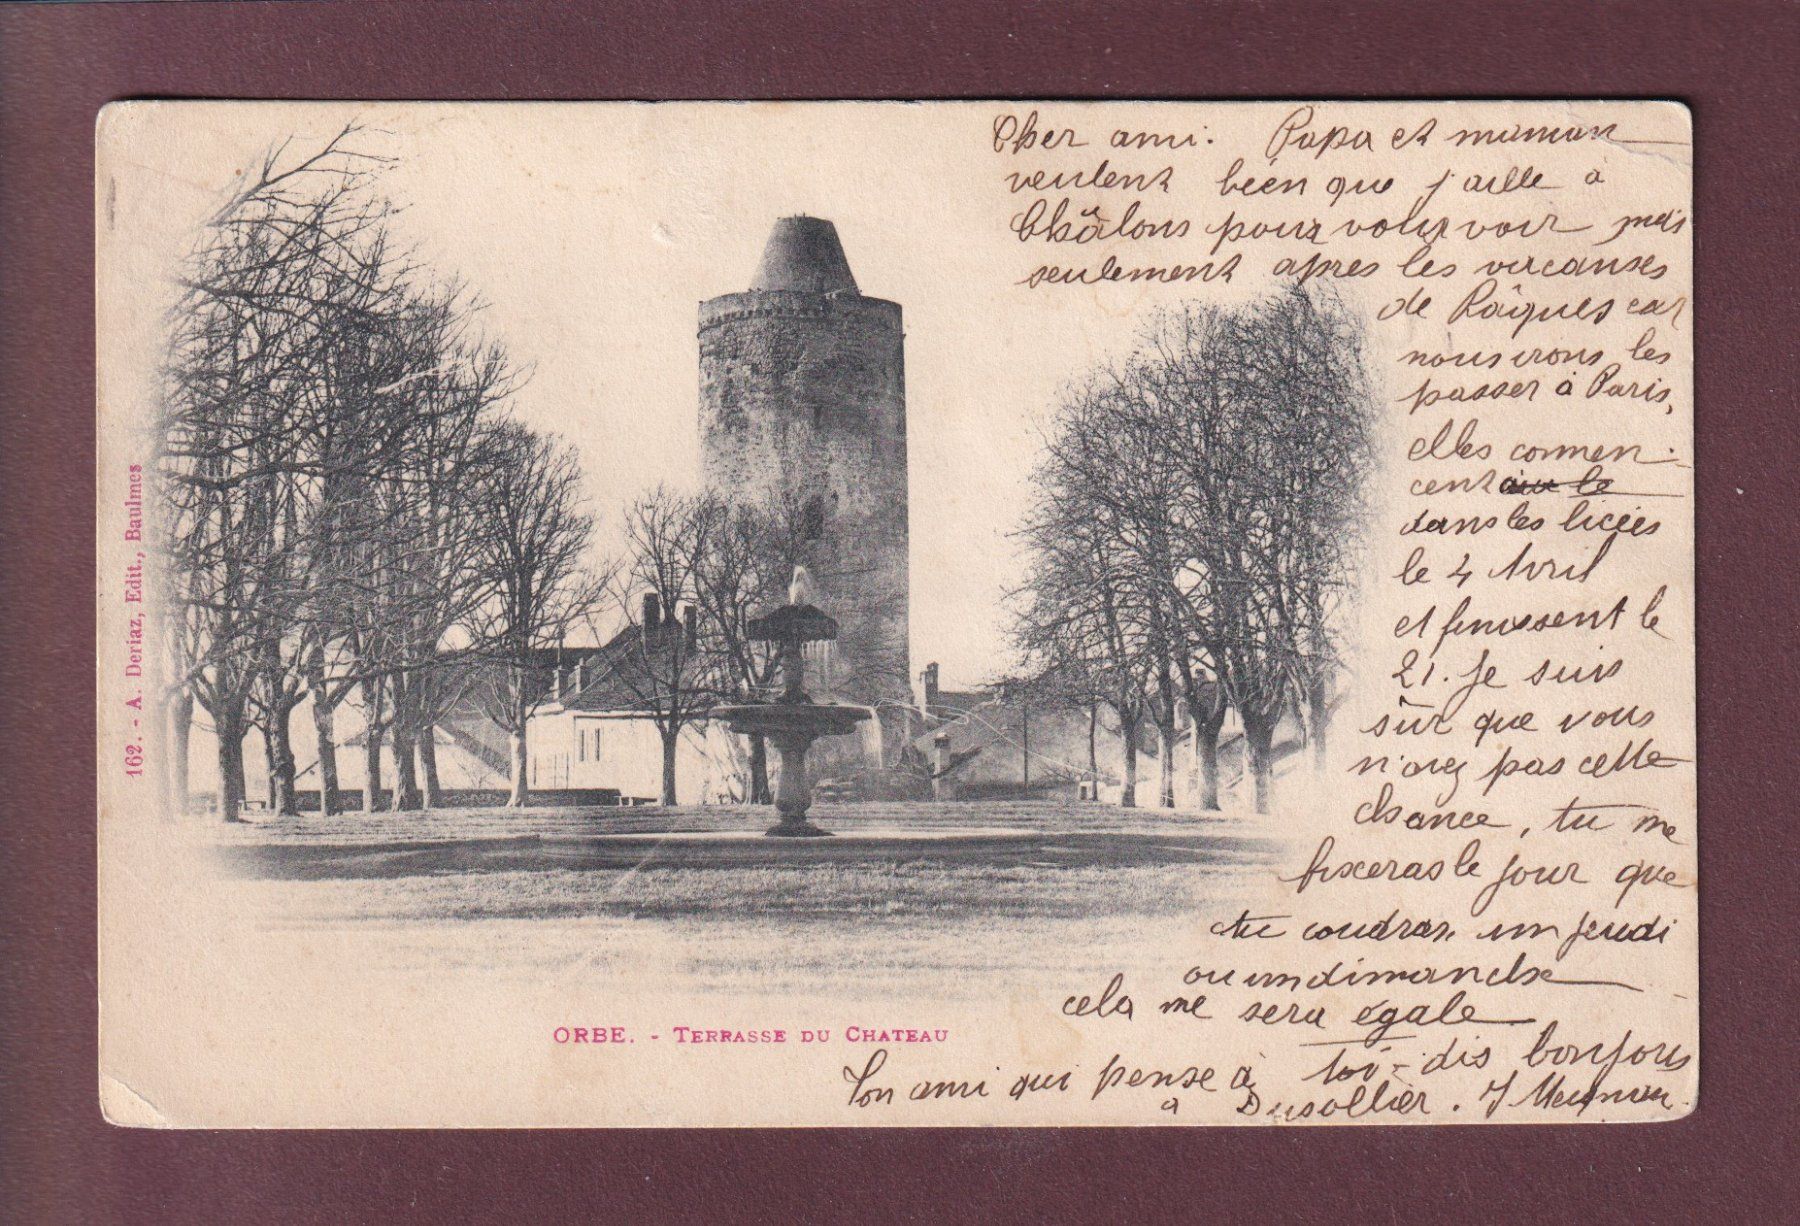 Cher ami. Papa et maman
veulent bien que j'aille à
Châlons pour vous voir mais
seulement après les vacanses
de Pâques car
nous irons les
passer à Paris,
elles commen-
cent aux le
dans les licées
le 4 Avril
et finissent le
21. Je suis
sûr que vous
n'avez pas cette
chance, tu me
fixeras le jour que
tu voudras, un jeudi
ou un dimanche
cela me sera égale
Ton ami qui pense à toi - dis bonjours
à Dusollier. J
162. - A. Deriaz, Edit., Baulmes
ORBE. - TERRASSE DU CHATEAU